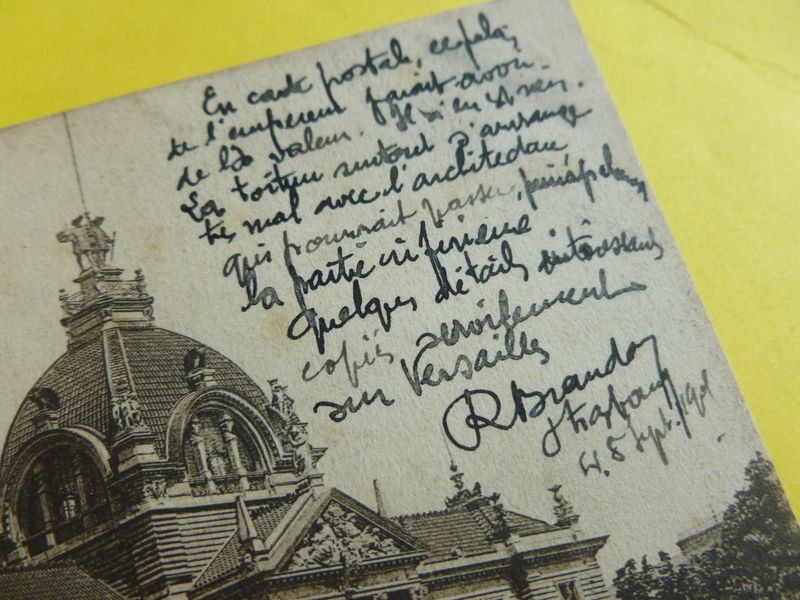 En carte postale, ce palais
de l'empereur parait avoir
de la valeur. Il n'en est rien.
La toiture surtout s'arrange
très mal avec l'architecture
qui pourrait passer,
la partie inférieure
quelques détails intéressants
copiés
sur Versailles
Strasbourg
8 Sept.